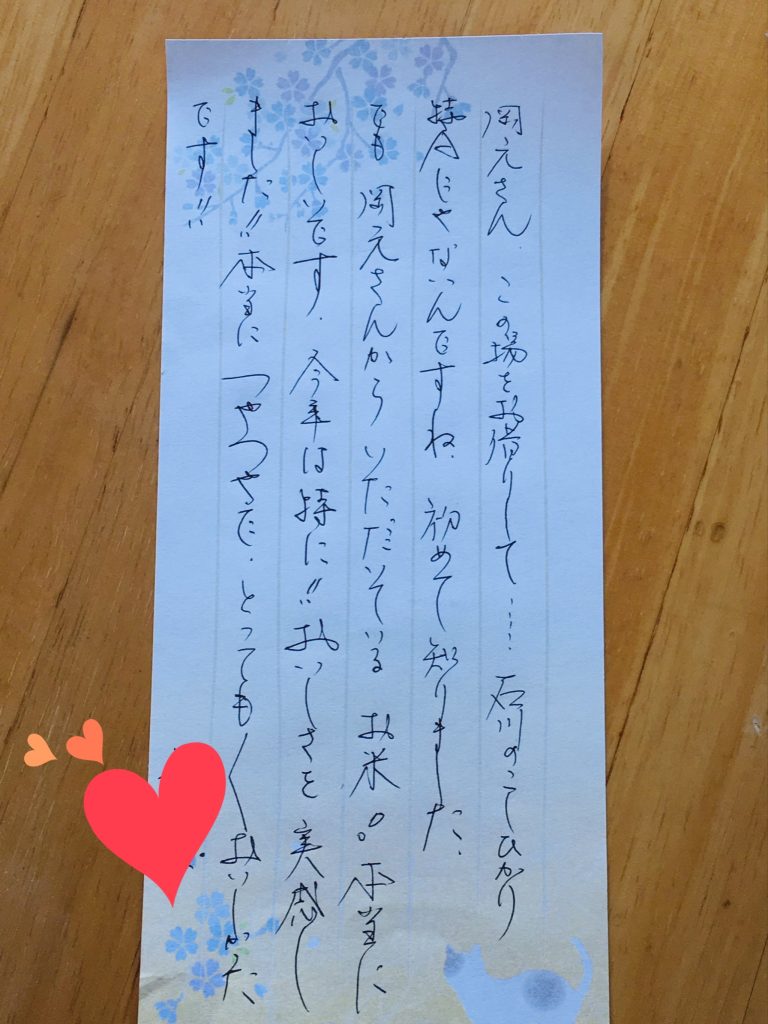 岡元さん. この場をお借りして.... 石川のこしひかり
特Aじゃないんですね. 初めて知りました.
でも 岡元さんから いただいている お米。。本当に
おいしいです. 今年は特に!! おいしさを実感し
ました!! 本当に つやつやで. とっても〱おいしかった
です!!